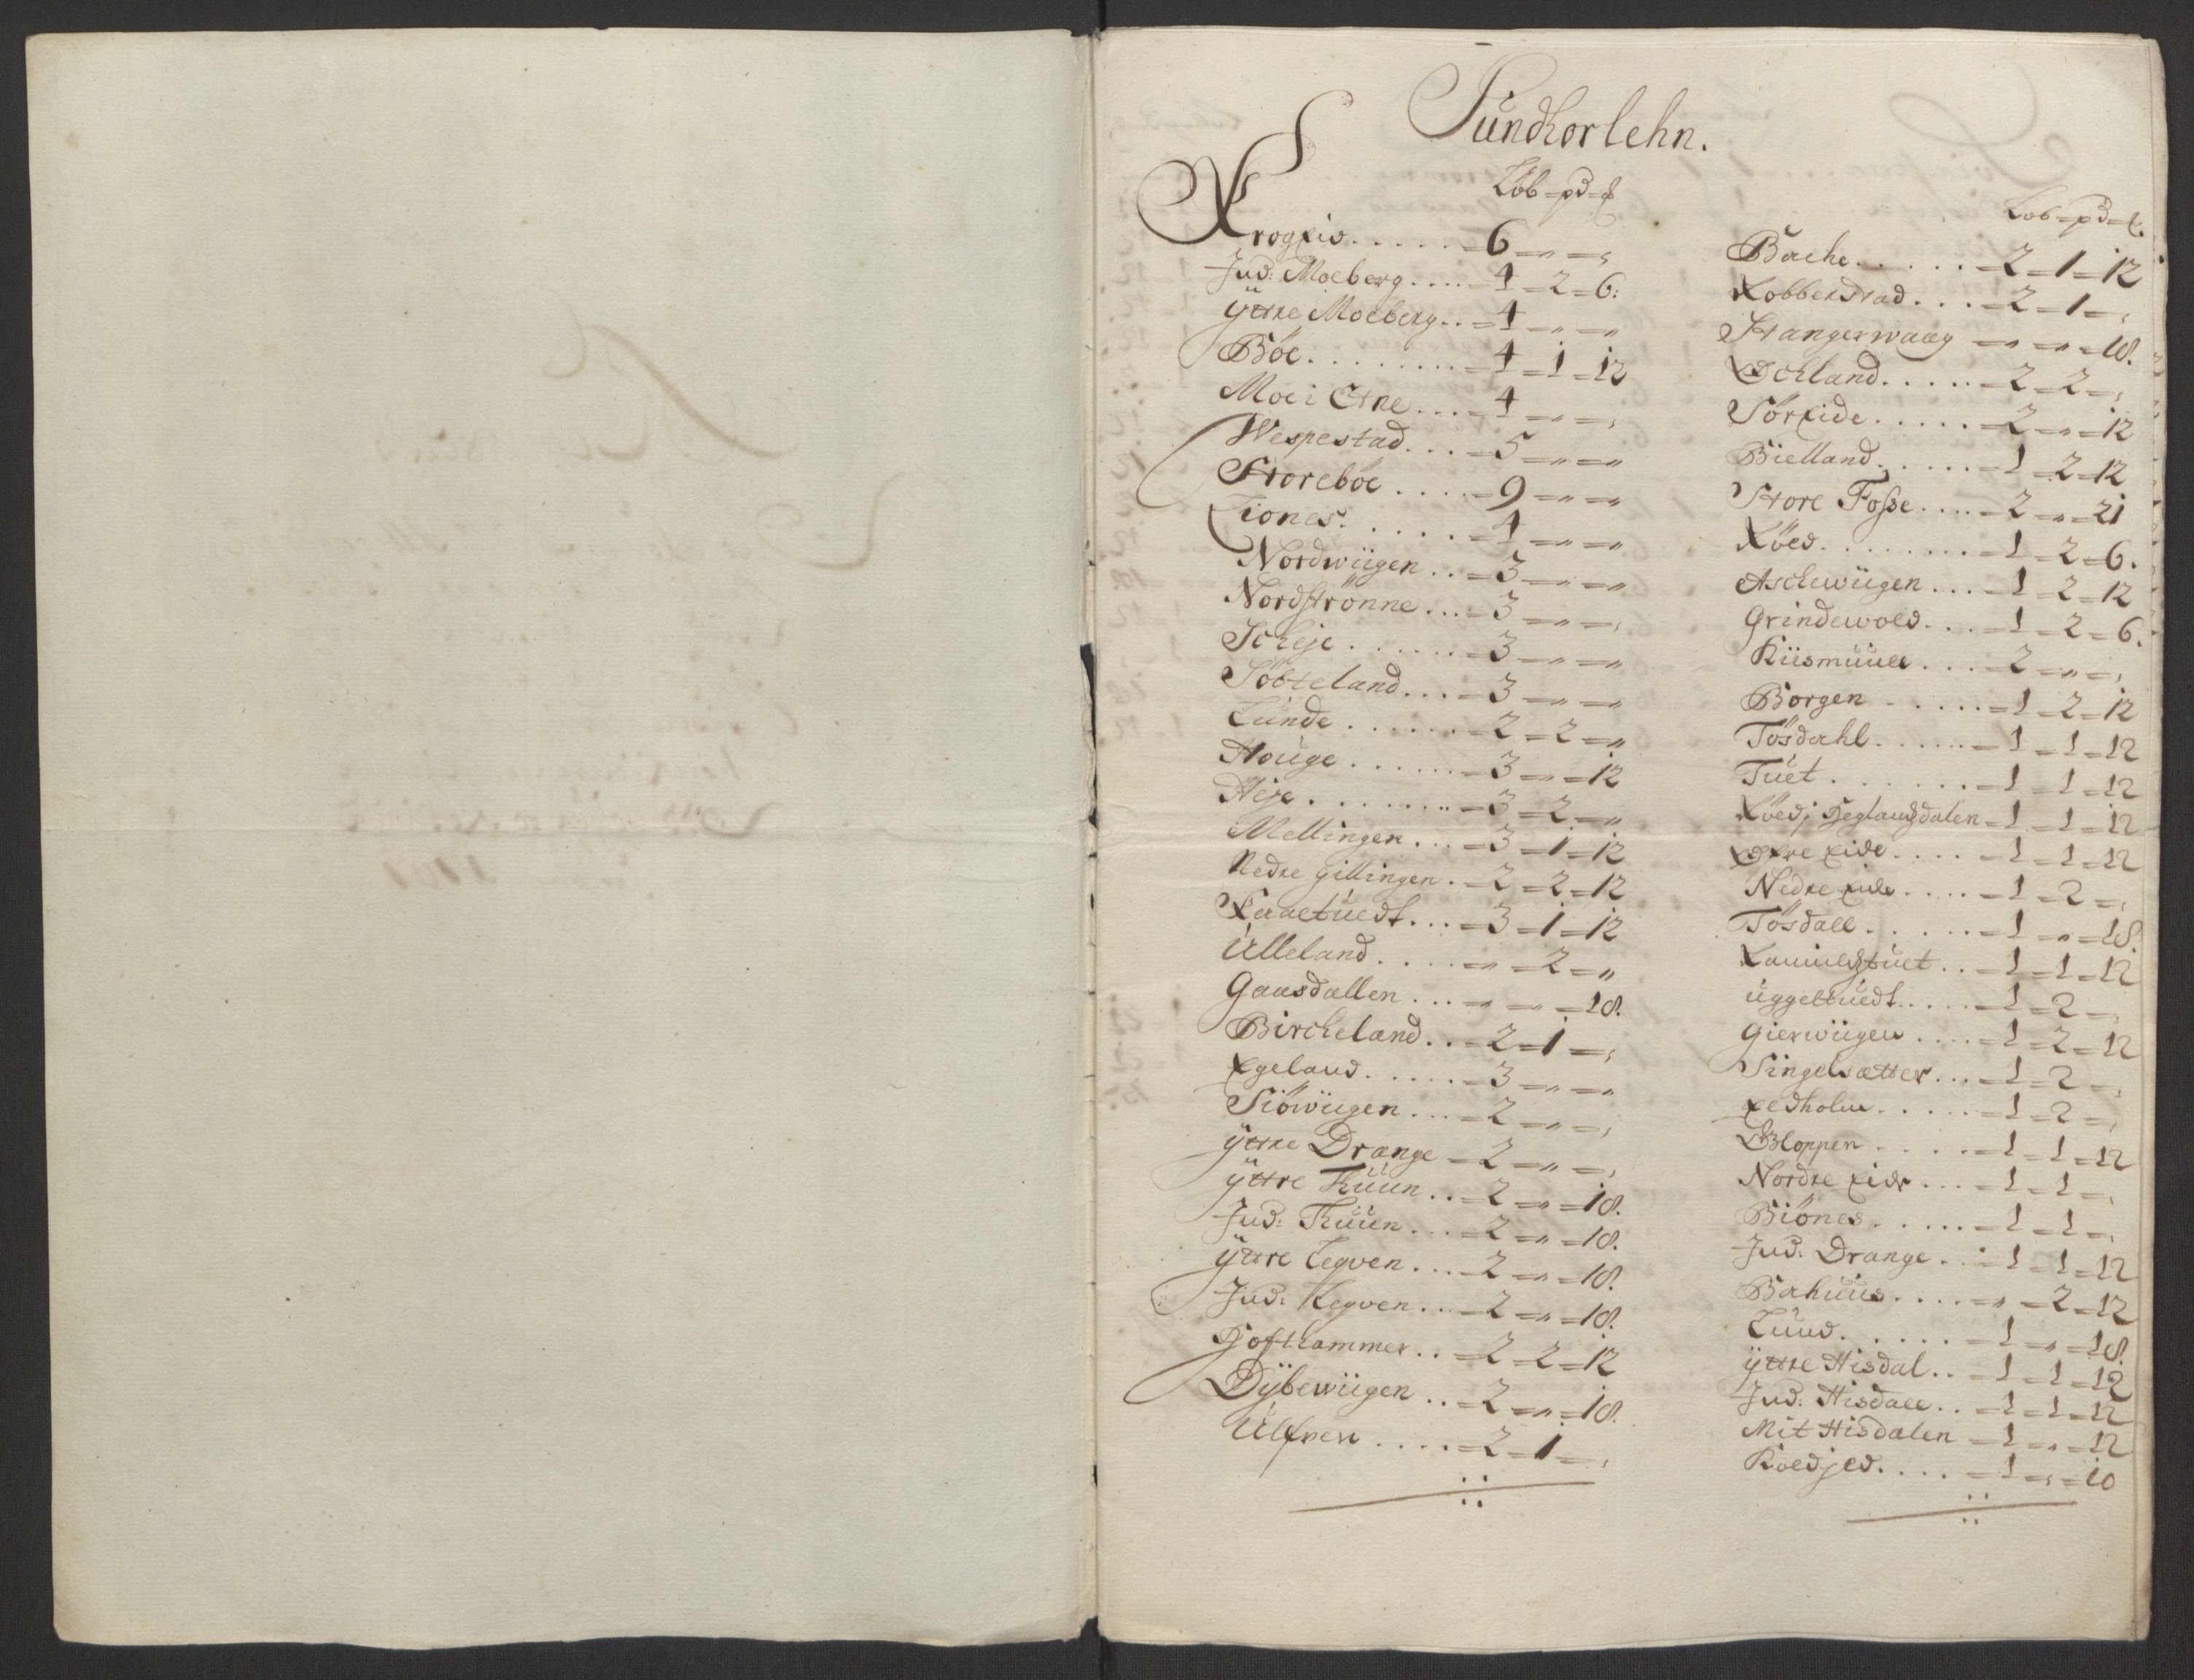 Sundhorlehn.
Löb - pd - ℔
Krogeid . . . . . . - 6 - „ - „
Ind: Moeberg . . . . - 4 - 2 - 6:
ÿttre Moeberg . . - 4 - „ - „
Böe . . . . . . . . - 4 - 1 - 12
Moe i Etne . . . - 4 - „ - „
Wespestad . . . - 5 - „ - „
Storeböe . . . . - 9 - „ - „
Liones . . . . . - 4 - „ - „
Nordwiigen . . - 3 - „ - „
Nordströnne . . . - 3 - „ - „
Scheje . . . . . . - 3 - „ - „
Söbteland . . . - 3 - „ - „
Lunde . . . . . . - 2 - 2 - „
Houge . . . . . . - 3 - „ - 12
Heje . . . . . . . - 3 - 2 - „
Mellingen . . . - 3 - 1 - 12
Nedre gillingen . - 2 - 2 - 12
. . . - 3 - 1 - 12
Ulleland . . . . - „ - 2 - „
Gaasdallen . . . - „ - „ - 18.
Bircheland . . - 2 - 1 - „
Egeland . . . . . - 3 - „ - „
Siöwiigen . . . - 2 - „ - „
ÿttre Drange - 2 - „ - „
ÿttre Tuun . . - 2 - „ - 18.
Ind: Tuun . . . - 2 - „ - 18.
ÿttre Legven . . . - 2 - „ - 18.
Ind: Legven . . - 2 - „ - 18.
Gofthammer . . - 2 - 2 - 12
Dÿbewiigen . . - 2 - „ - 18.
Ulfven . . . . - 2 - 1 - „
Lob - pd - ℔.
Bache . . . . . - 2 - 1 - 12
Kobberstad . . . - 2 - 1 - „
Stangerwaag - „ - „ - 18.
. . . . . - 2 - 2 - „
Söreide . . . . . - 2 - „ - 12
Bielland . . . . . - 1 - 2 - 12
Store Fosse . . . . - 2 - „ - 21
Röed . . . . . . . . - 1 - 2 - 6.
Aschewiigen . . . - 1 - 2 - 12
Grindevold . . . - 1 - 2 - 6.
Riismuull . . . - 2 - „ - „
Borgen . . . . . - 1 - 2 - 12
Tösdahl . . . . . . - 1 - 1 - 12
Tuet . . . . . . . - 1 - 1 - 12
Röed j Heglandsdalen - 1 - 1 - 12
Øfre Eide . . . . - 1 - 1 - 12
Nedre Eide . . . . - 1 - 2 - „
Tösdall . . . . . - 1 - „ - 18.
. . - 1 - 1 - 12
uggeltuedt . . . . . - 1 - 2 - „
Gierwiigen . . . . - 1 - 2 - 12
Singelsætter . . . - 1 - 2 - „
Eedholm . . . . . - 1 - 2 - „
Gloppen . . . . - 1 - 1 - 12
Nordre Eide . . . - 1 - 1 - „
Biönes . . . . . - 1 - 1 - „
Ind: Drange . . . - 1 - 1 - 12
Bahuus . . . . - „ - 2 - 12
Lund . . . . . . - 1 - „ - 18.
ÿttre Hisdal . . - 1 - 1 - 12
Ind: Hisdall . . - 1 - 1 - 12
Mit Hisdalen - 1 - „ - 12
Röedjed . . . . - 1 - „ - 10